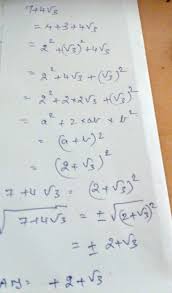 7+4√3
= 4+3+4√3
= 2²+(√3)²+4√3
= 2²+4√3+(√3)²
= 2²+2×2√3+(√3)²
= a²+2×ab×b²
= (a+b)²
= (2+√3)²
7+4√3 = (2+√3)²
√7+4√3 = ±√(2+√3)²
= ± 2+√3
+2+√3